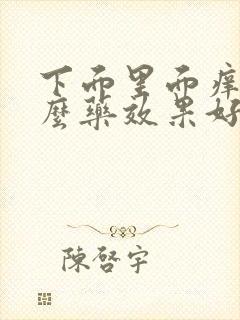 下面里面痒
麼藥效果好
陳啓宇